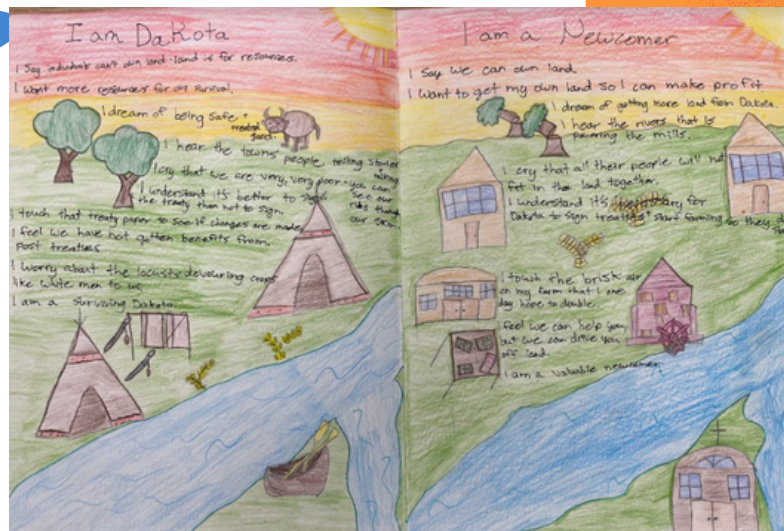 I am Dakota
I say individuals can't own land-land is for resources.
I want more resources for our survival.
I dream of being safe + treated good.
I hear the towns people telling stories
I cry that we are very, very poor-you can see our ribs though our skin.
I understand it's better to sign the treaty than not to sign.
I touch that treaty paper to see if changes are made
I feel we have not gotten benefits from past treaties
I worry about the locusts devouring crops
like white men to us.
I am a surviving Dakota.
I am a Newcomer
I say we can own land.
I want to get my own land so I can make profit.
I dream of getting more land from Dakota.
I hear the rivers that is
powering the mills.
I cry that all their people will not
fit in the land together.
I understand it's necessary for
Dakota to sign treaties + start farming so they
I touch the brisk air
on my farm that I one
day hope to double.
I feel we can help you,
but we can drive you
off land.
I am a valuable newcomer.